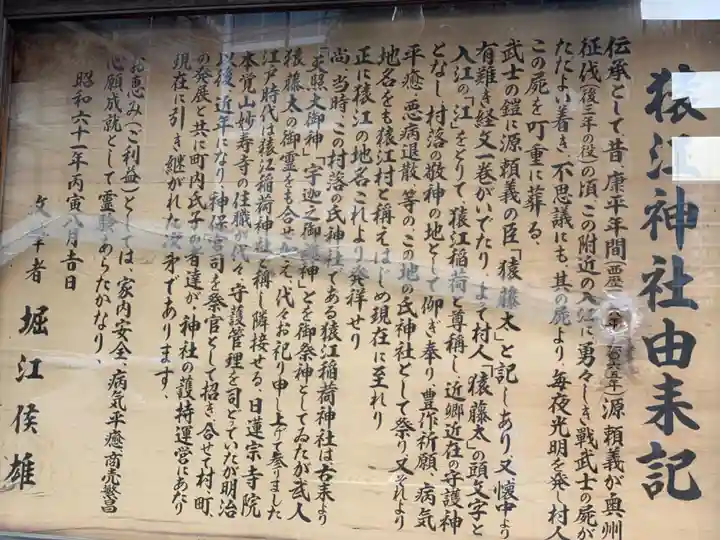 猿江神社由来記
伝承として、昔、康平年間(西暦一〇五八年―一〇六五年)源頼義が奥州
征伐(後三年の役)の頃、この附近の入江に勇々しき戦武士の屍が
ただよい着き、不思議にも、其の屍より、毎夜光明を発し村人
この屍を叮重に葬る、
武士の鎧に源頼義の臣「猿藤太」と記しあり、又懐中より
有難き経文一巻がいでたり、よて村人「猿藤太」の頭文字と
入江の「江」をとりて、猿江稲荷と尊称し、近郷近在の守護神
となし、村落の敬神の地として仰ぎ奉り、豊作祈願、病気
平癒・悪病退散、等の、この地の氏神社として祭り、又それより
地名をも猿江村と称えはじめ現在に至れり
正に猿江の地名これより発祥せり
尚、当時、この村落の氏神社である猿江稲荷神社は古来より
「天照大御神」「宇迦之御魂神」とを御祭神としてゐたが武人
猿藤太の御霊をも合せ加え、代々お祀り申し上げて参りました
江戸時代は猿江稲荷神社と称し隣接せる、日蓮宗寺院
本覚山妙寿寺の住職が代々、守護管理を司どっていたが明治
以後近年になり、神保宮司を祭官として招き、合せて村、町、
の発展と共に町内氏子の者達が、神社の護持運営にあたり
現在に引き継がれた次第であります、
お恵み(ご利益)としては、家内安全、病気平癒、商売繁昌
心願成就として霊験あらたかなり、
昭和六十一年丙寅八月吉日
文字者 堀江俟雄